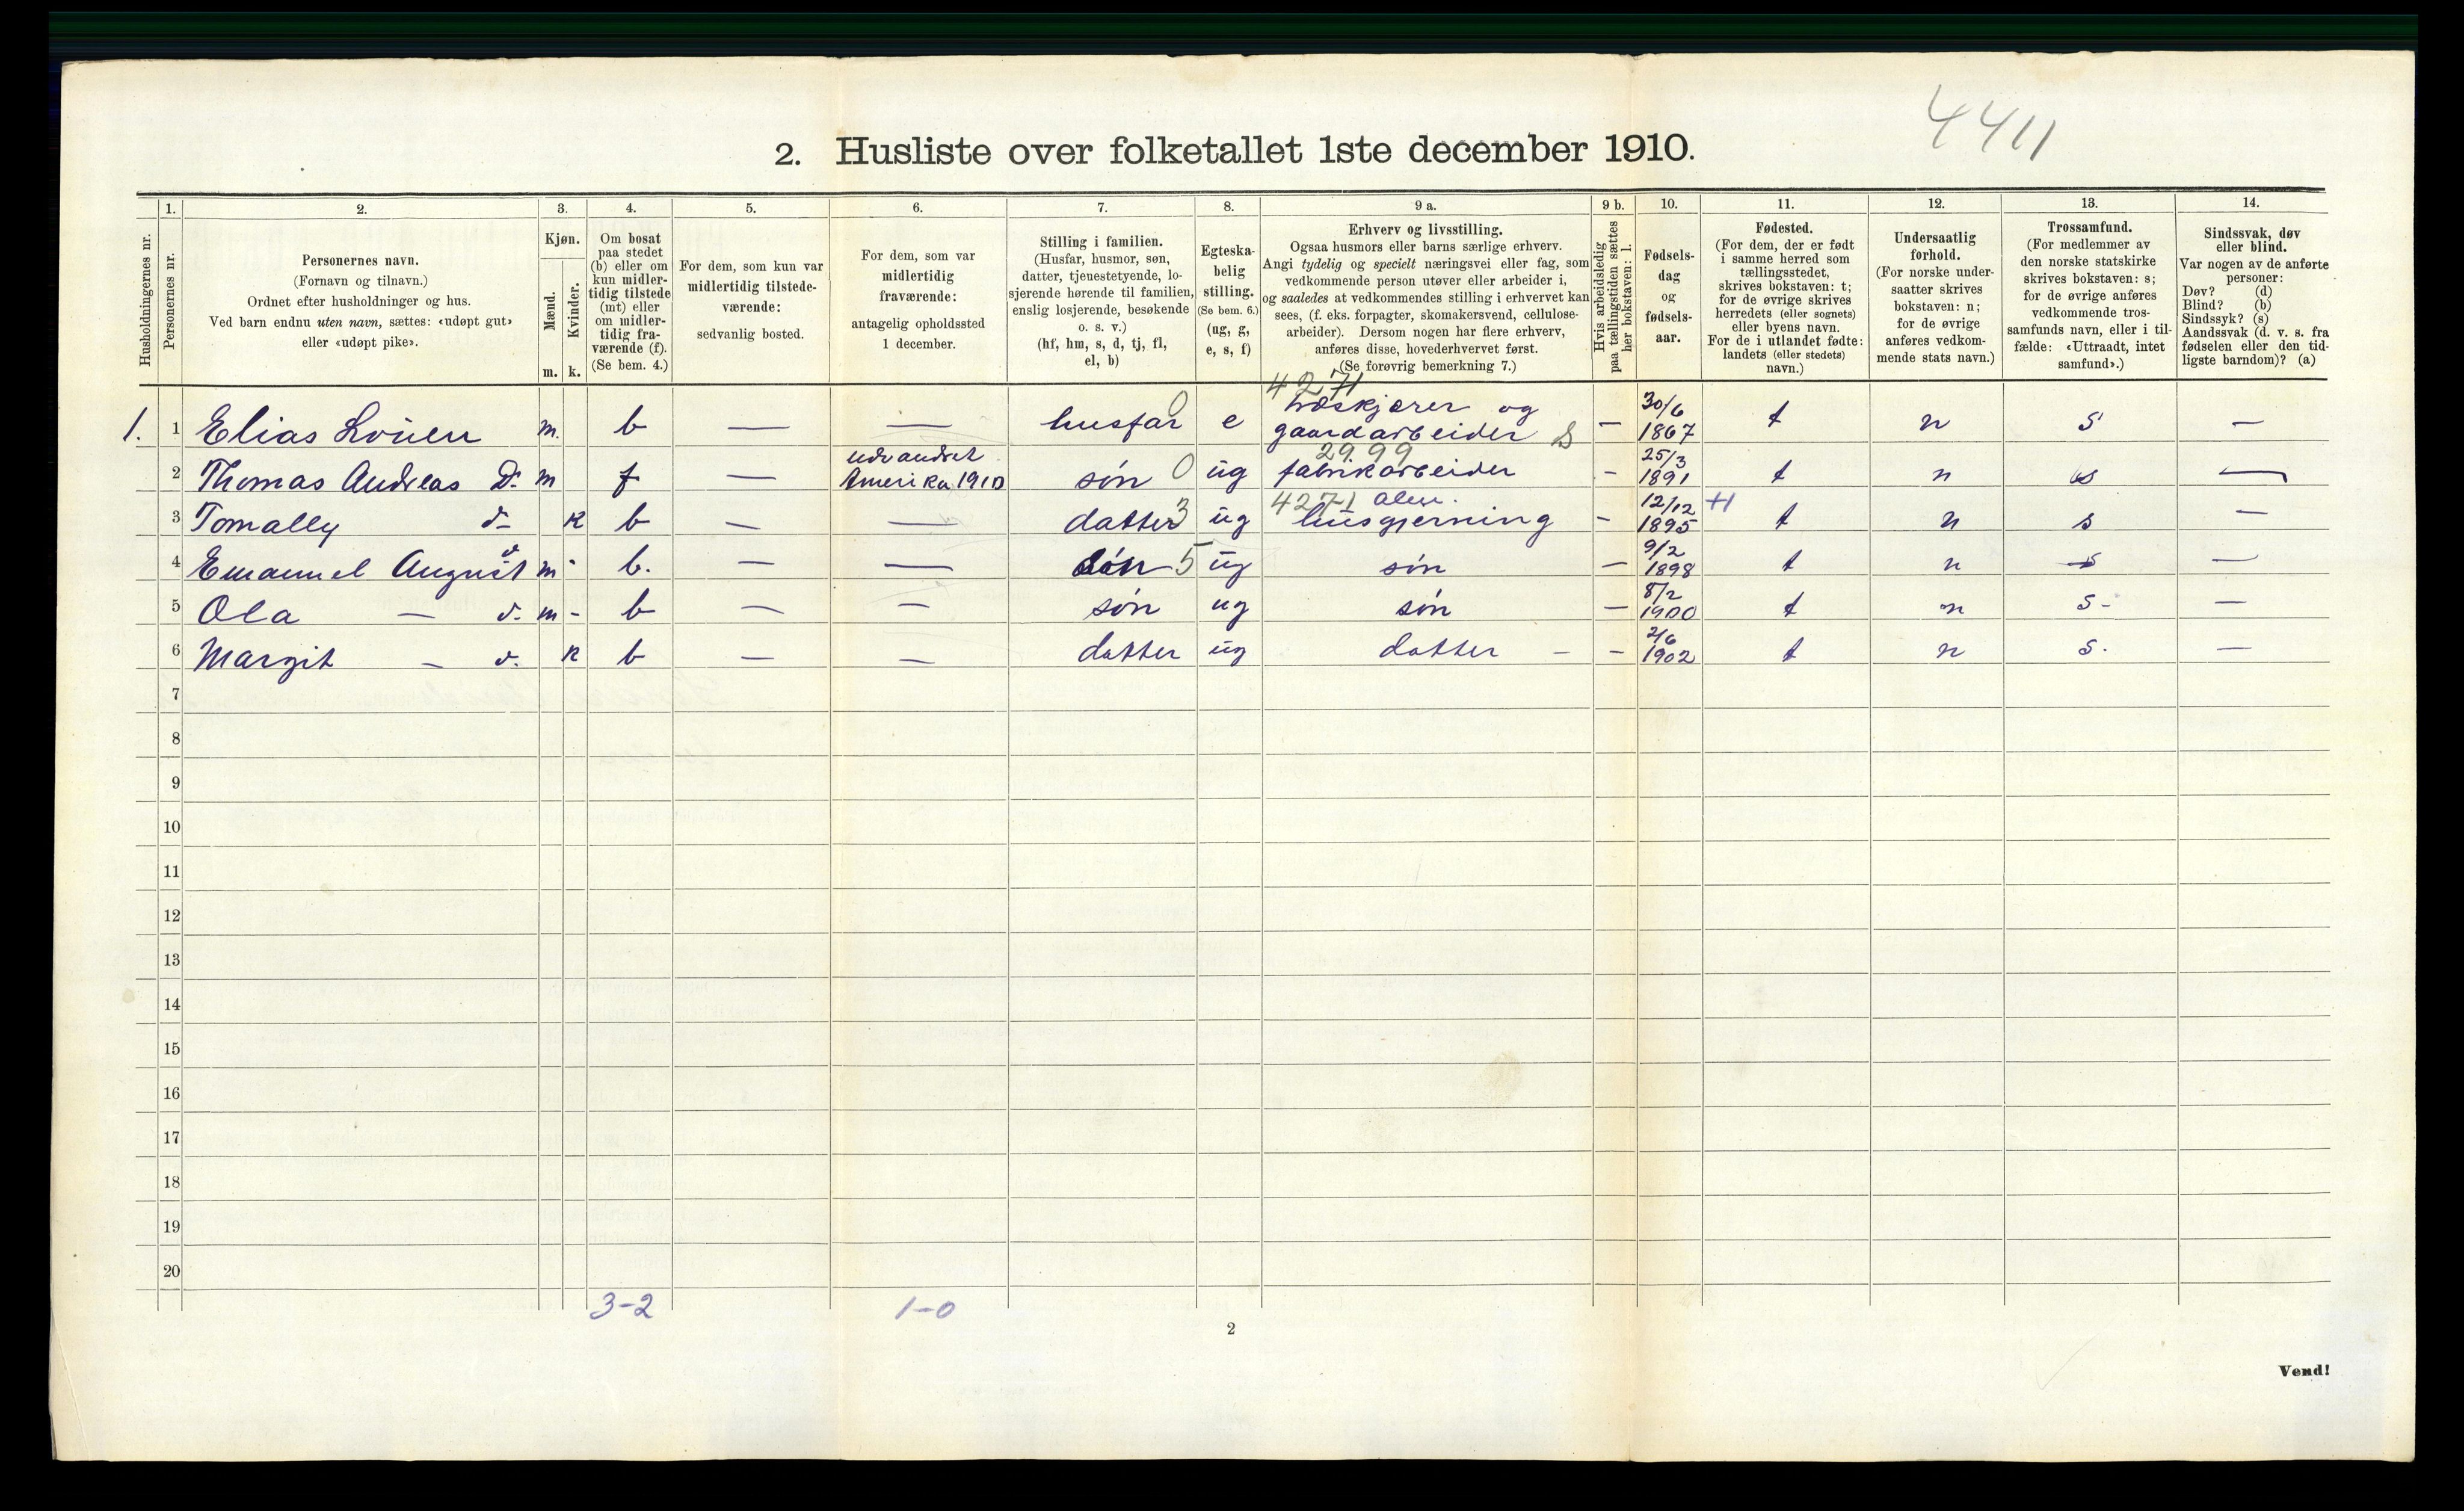 4411
2. Husliste over folketallet 1ste december 1910.
1. 2. 3. 4. 5. 6. 7. 8. 9 a. 9 b. 10. 11. 12. 13. 14.
Husholdningernes nr.
Personernes nr.
Personernes navn.
(Fornavn og tilnavn.)
Ordnet efter husholdninger og hus.
Ved barn endnu uten navn, sættes: «udøpt gut»
eller «udøpt pike».
Kjøn.
Mænd.
Kvinder.
m. k.
Om bosat
paa stedet
(b) eller om
kun midler-
tidig tilstede
(mt) eller
om midler-
tidig fra-
værende (f).
(Se bem. 4.)
For dem, som kun var
midlertidig tilstede-
værende:
sedvanlig bosted.
For dem, som var
midlertidig
fraværende:
antagelig opholdssted
1 december.
Stilling i familien.
(Husfar, husmor, søn,
datter, tjenestetyende, lo-
sjerende hørende til familien,
enslig losjerende, besøkende
o. s. v.)
(hf, hm, s, d, tj, fl,
el, b)
Egteska-
belig
stilling.
(Se bem. 6.)
(ug, g,
e, s, f)
Erhverv og livsstilling.
Ogsaa husmors eller barns særlige erhverv.
Angi tydelig og specielt næringsvei eller fag, som
vedkommende person utøver eller arbeider i,
og saaledes at vedkommendes stilling i erhvervet kan
sees, (f. eks. forpagter, skomakersvend, cellulose-
arbeider). Dersom nogen har flere erhverv,
anføres disse, hovederhvervet først.
(Se forøvrig bemerkning 7.)
Hvis arbeidsledig
paa tællingstiden sættes
her bokstaven: l.
Fødsels-
dag
og
fødsels-
aar.
Fødested.
(For dem, der er født
i samme herred som
tællingsstedet,
skrives bokstaven: t;
for de øvrige skrives
herredets (eller sognets)
eller byens navn.
For de i utlandet fødte:
landets (eller stedets)
navn.)
Undersaatlig
forhold.
(For norske under-
saatter skrives
bokstaven: n;
for de øvrige
anføres vedkom-
mende stats navn.)
Trossamfund.
(For medlemmer av
den norske statskirke
skrives bokstaven: s;
for de øvrige anføres
vedkommende tros-
samfunds navn, eller i til-
fælde: «Uttraadt, intet
samfund».)
Sindssvak, døv
eller blind.
Var nogen av de anførte
personer:
Døv? (d)
Blind? (b)
Sindssyk? (s)
Aandssvak (d. v. s. fra
fødselen eller den tid-
ligste barndom)? (a)
4271
1. 1 Elias Louen m. b — — husfar 0 e træskjærer og gaardarbeider S — 30/6 1867 t n s —
29.99
2 Thomas Andreas D. m f — udvandret Amerika 1910 søn 0 ug fabrikarbeider - 25/3 1891 t n s —
4271 alm.
3 Tomally d- k b — — datter 3 ug husgjerning - 12/12 1895 +1 t n s —
4 Emanuel August d m - b. — — søn 5 ug søn — 9/2 1898 t n s —
5 Ola — d. m - b — — søn ug søn — 8/2 1900 t n s- —
6 Margit - d. k b — — datter ug datter - - 2/6 1902 t n s. —
7
8
9
10
11
12
13
14
15
16
17
18
19
20
3-2 1-0
2
Vend!